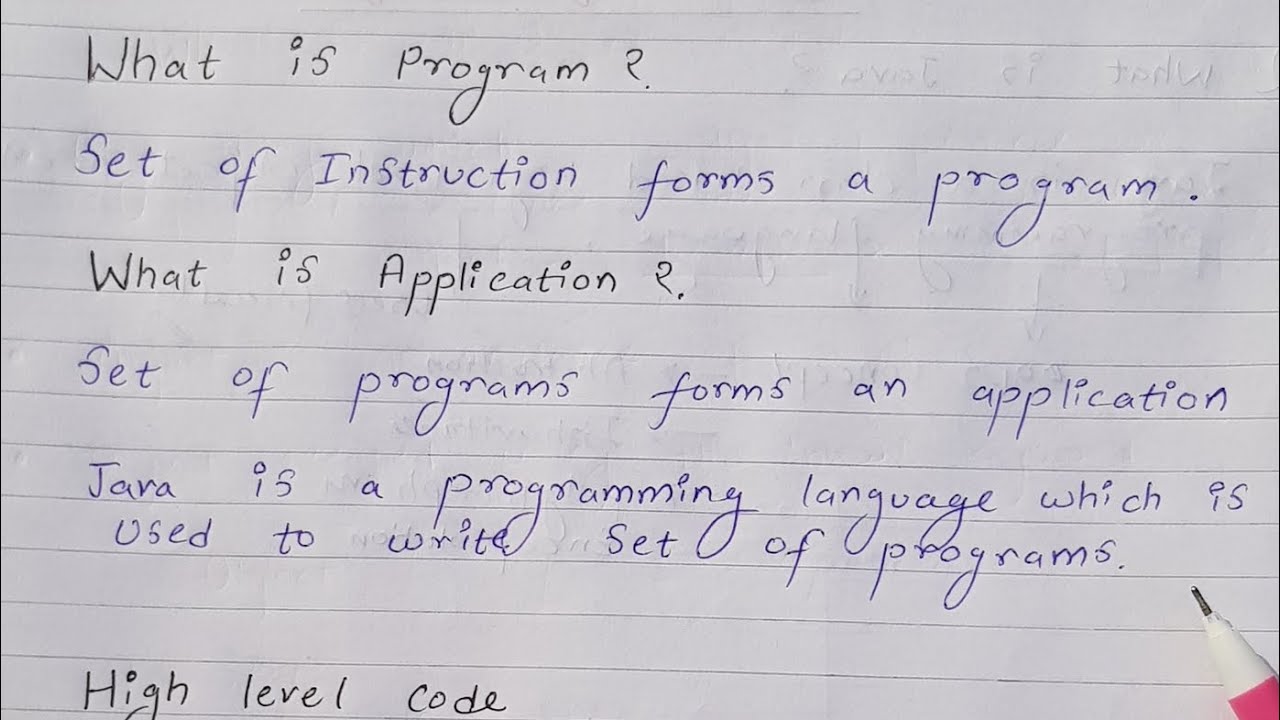 What is Program?
Set of Instruction forms a program.
What is Application?
Set of programs forms an application
Java is a programming language which is
used to write set of programs.
High level code